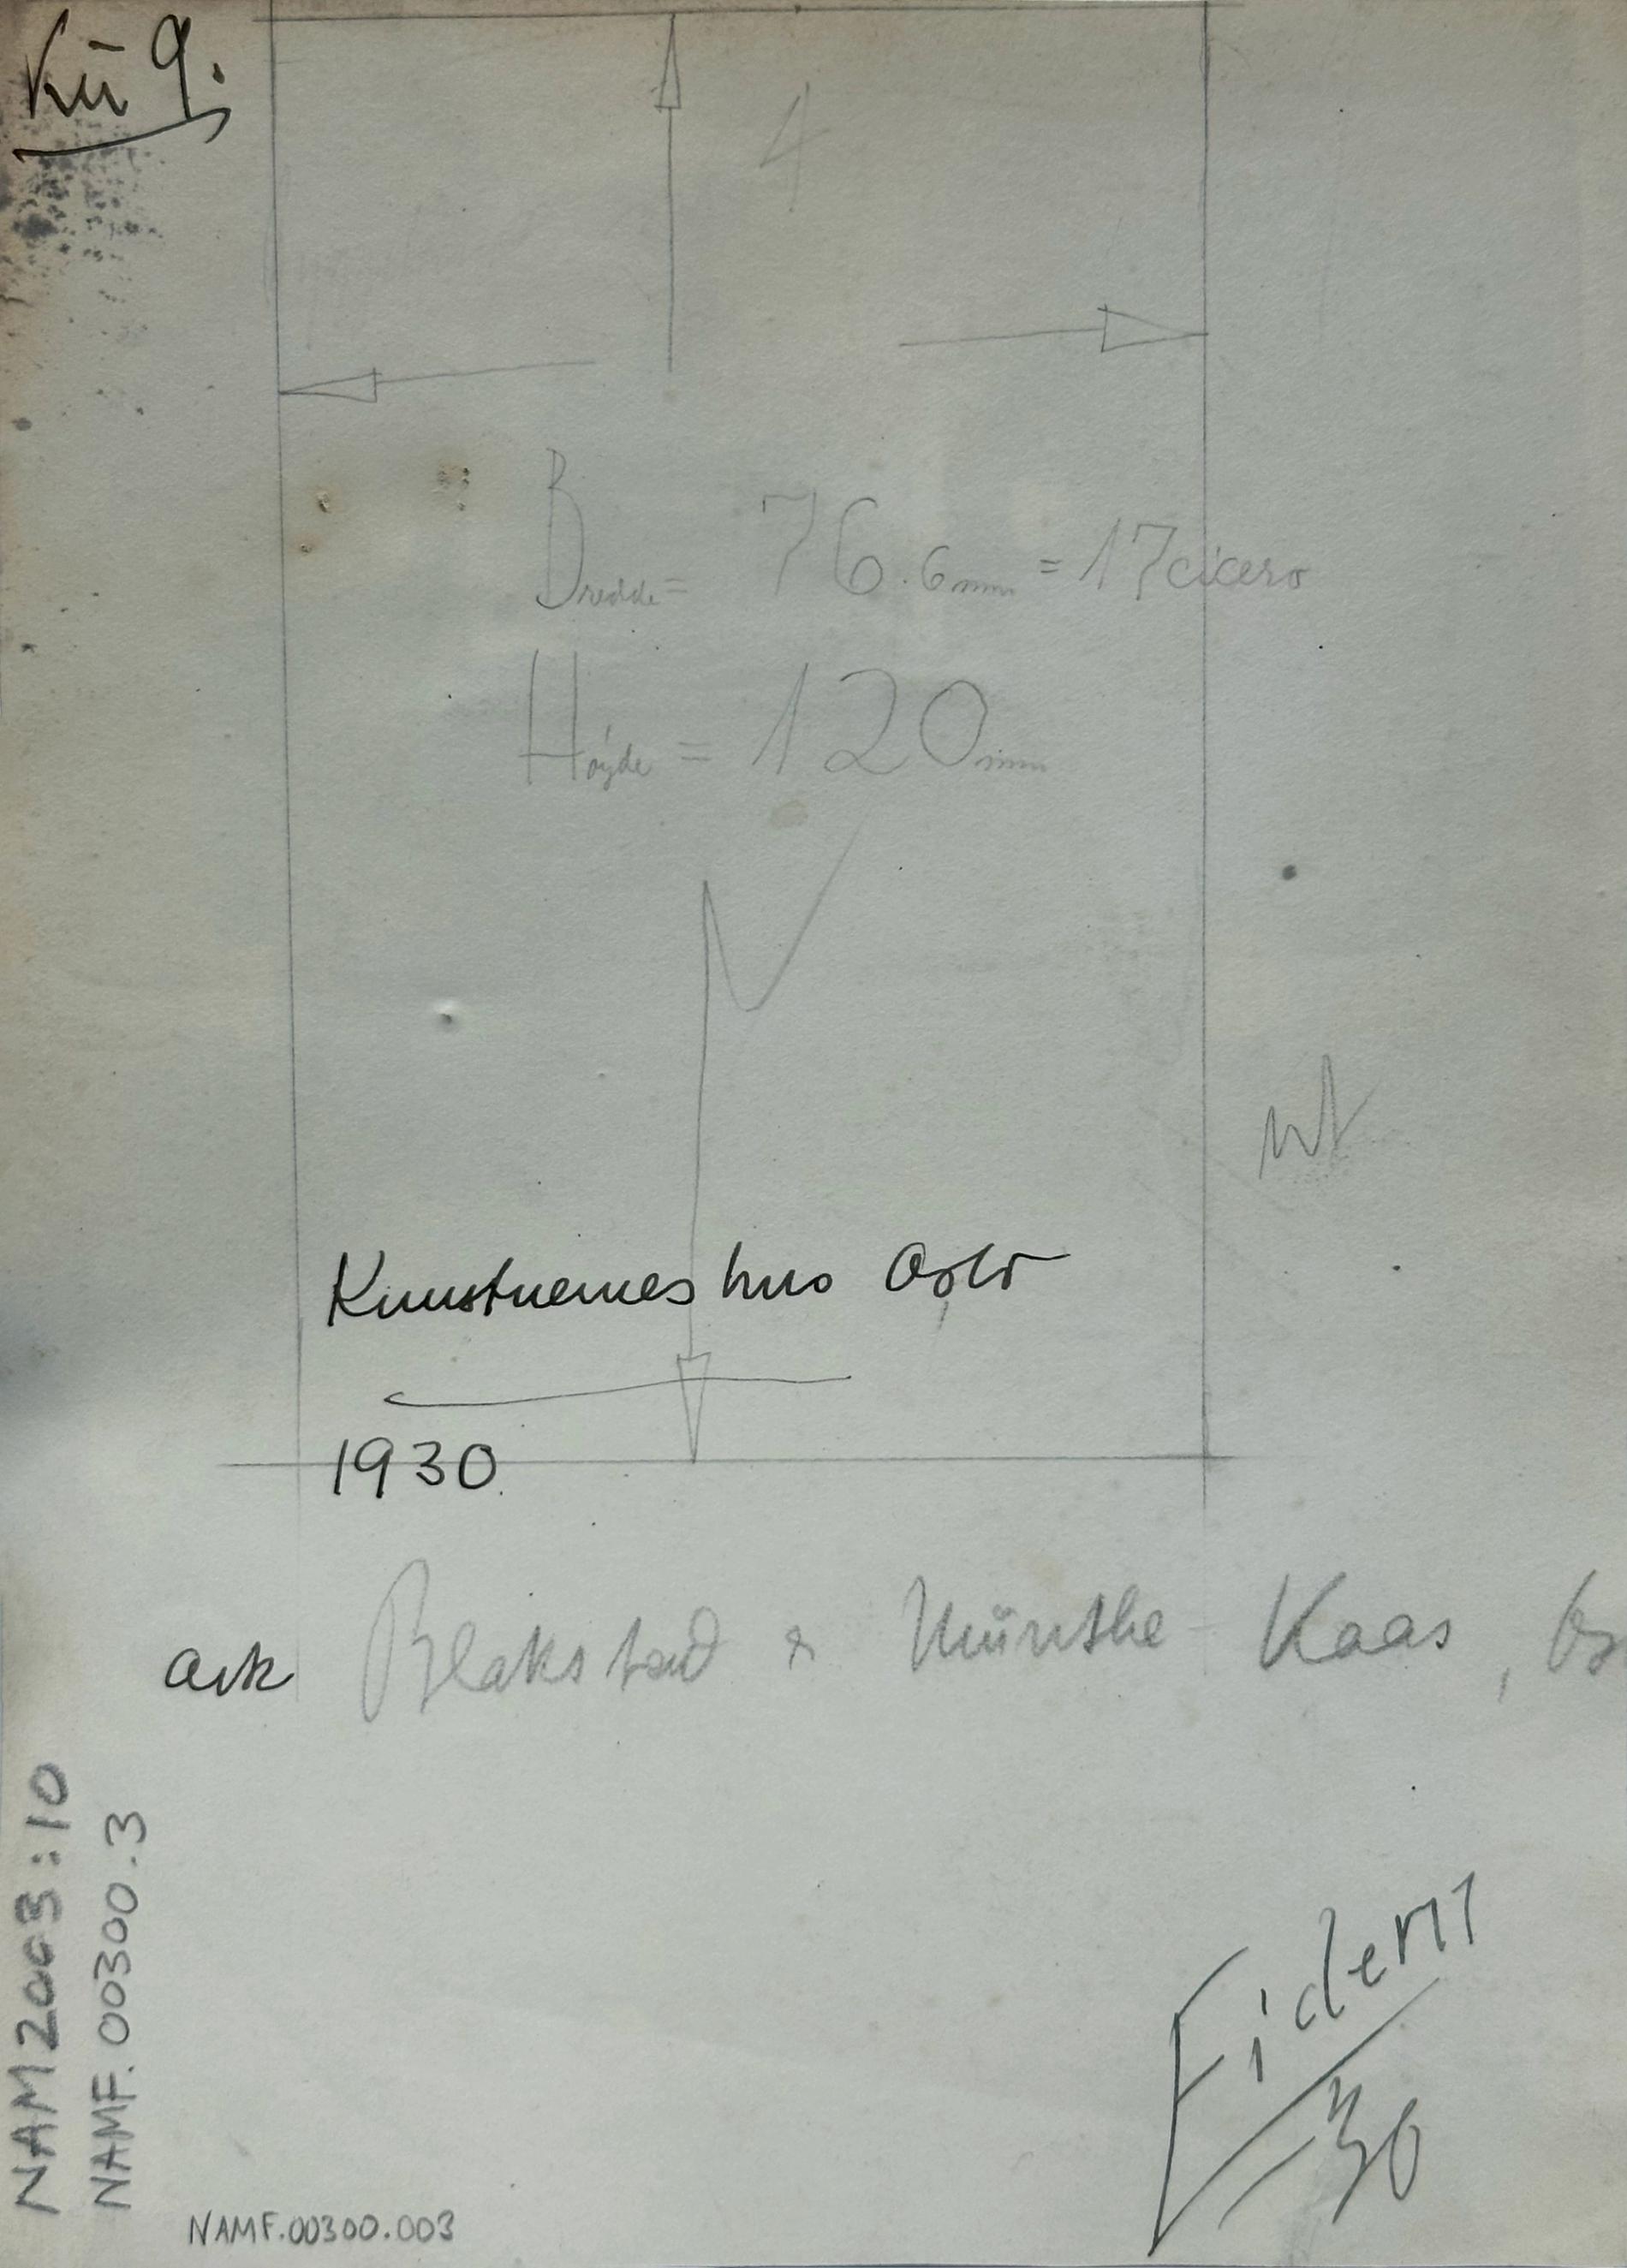 Kü 9.
4
Bredde = 76.6mm = 17 cicero
Høyde = 120mm
Kunstnernes hus Oslo
1930.
ark Blakstad & Münthe-Kaas,
NAM2003:10
NAMF.00300.3
NAMF.00300.003
Eidem